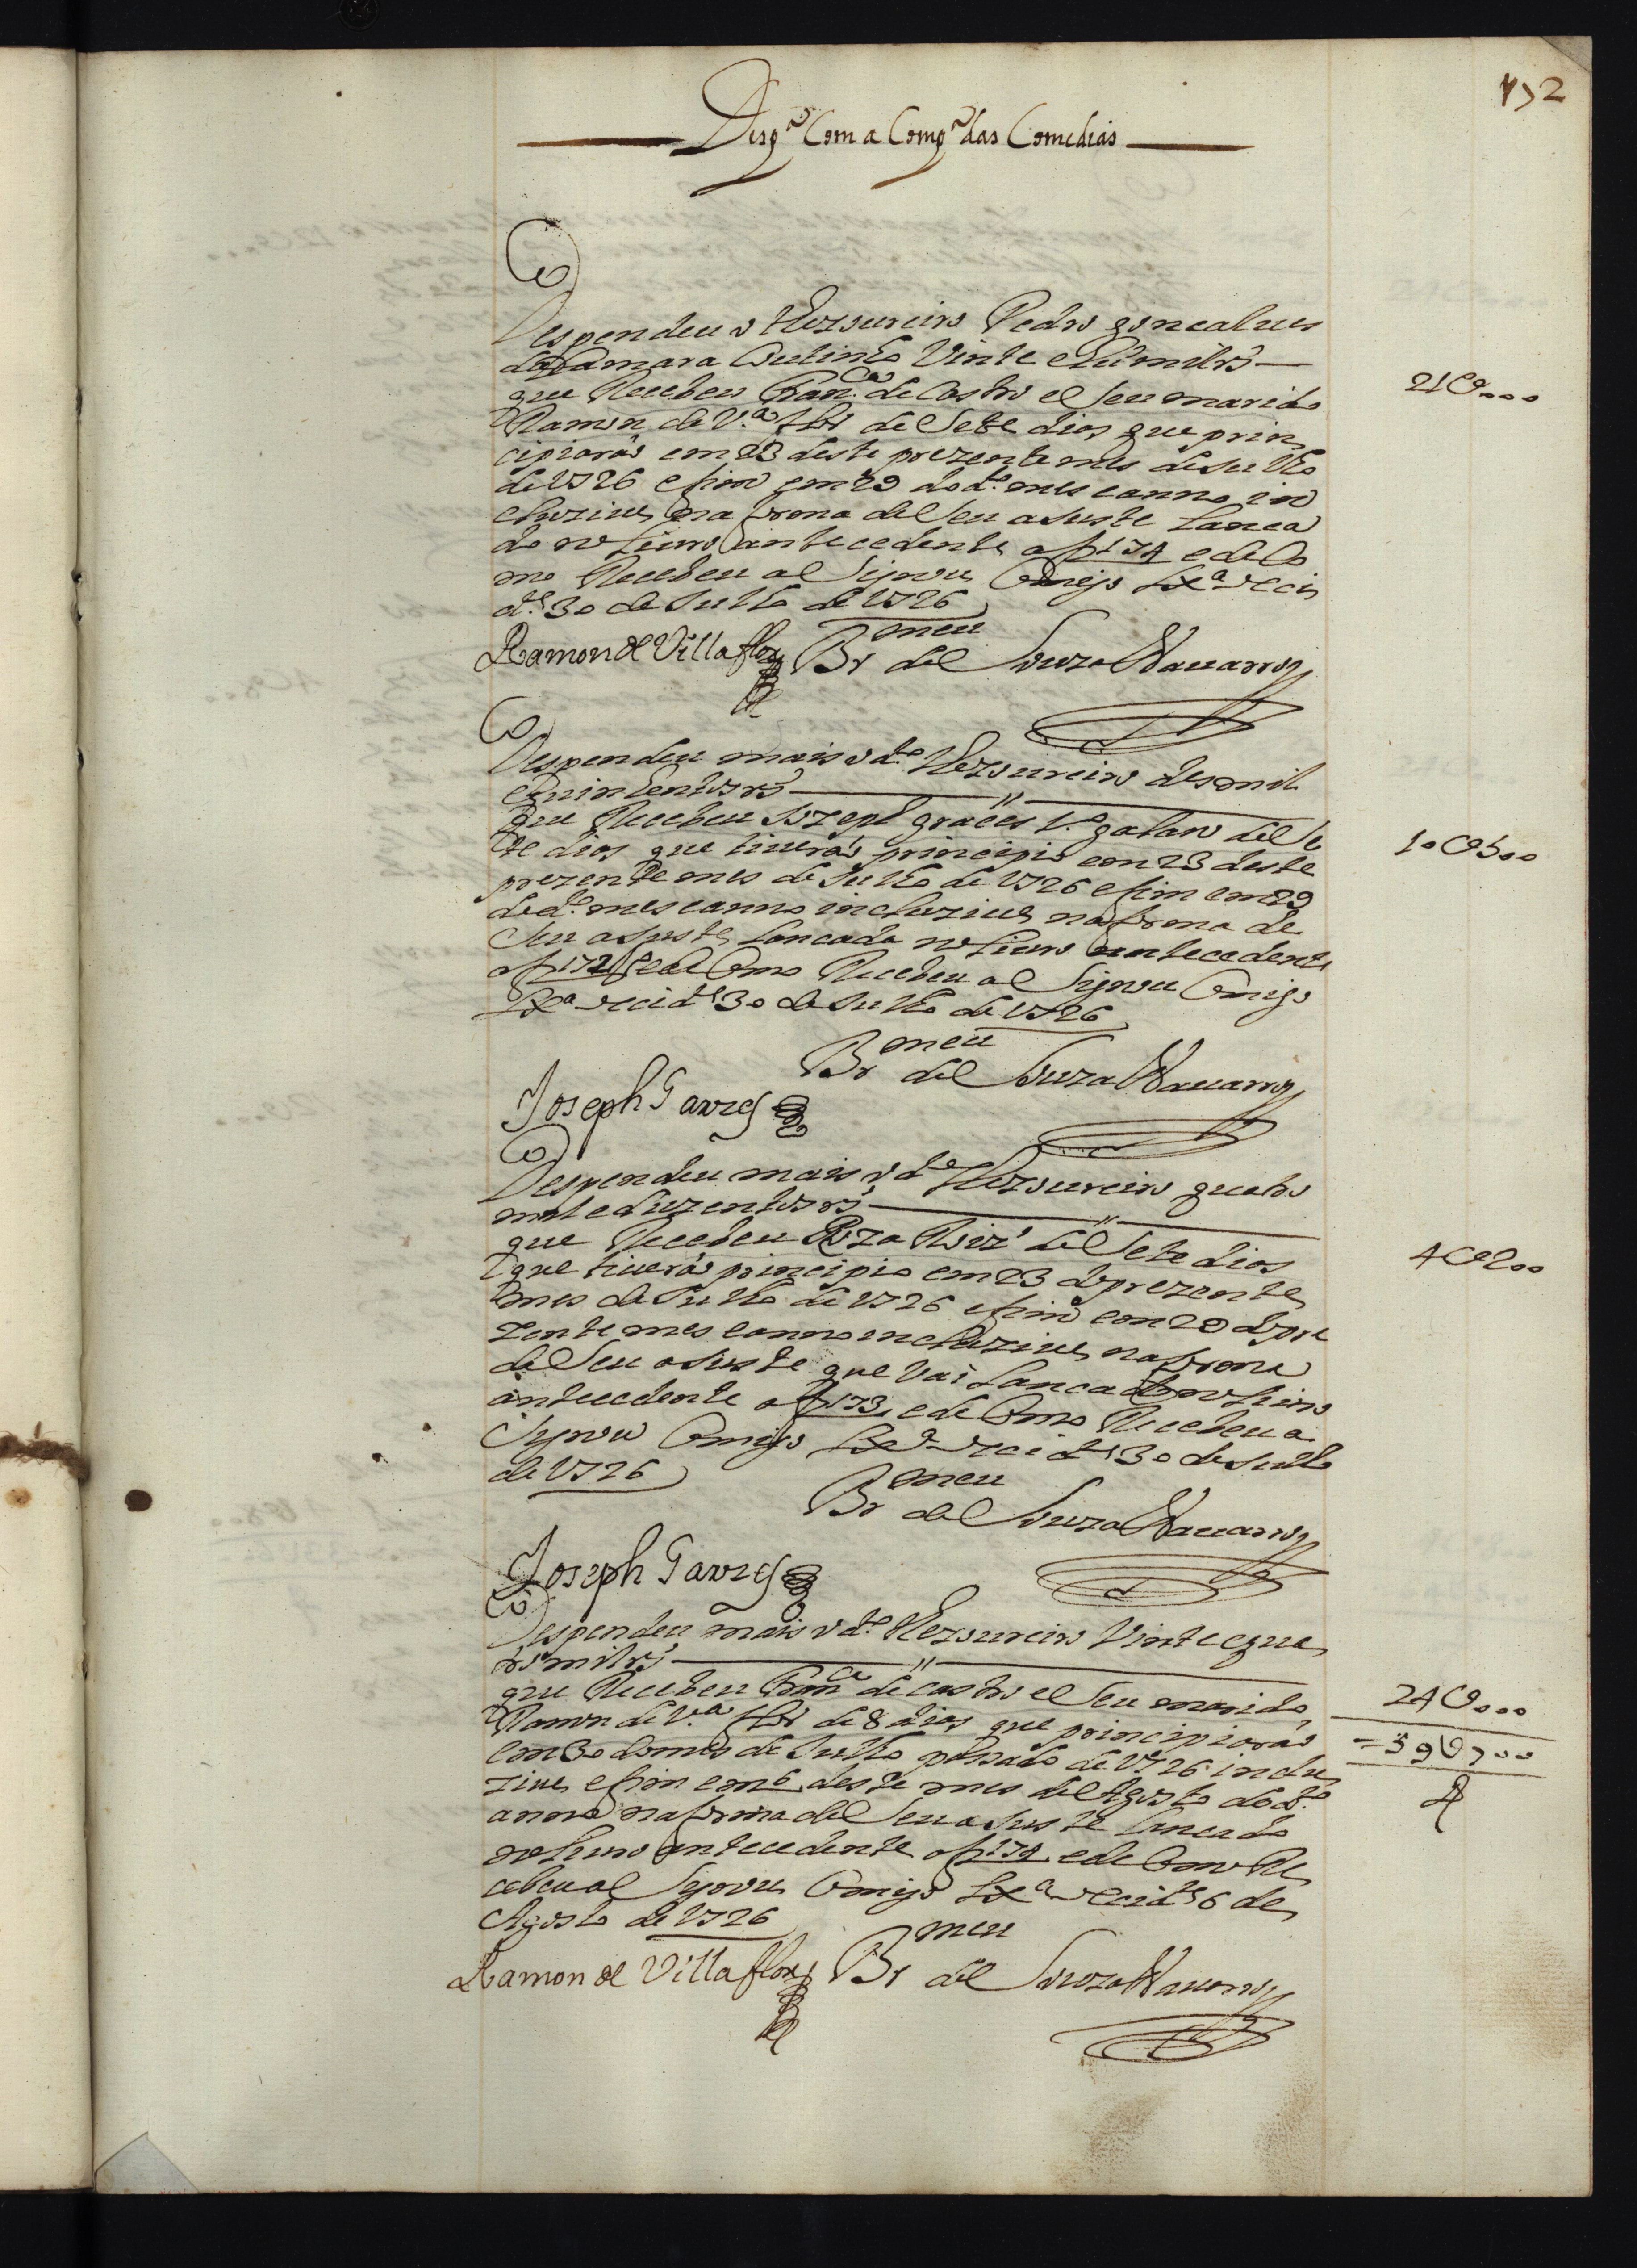 172
Desp.ª Com a Comp.ª das Comedias
Despendeu o Thezoureiro Pedro goncalues
da Camara Coutinho Vinte e hũ mil rs —
21U000
que Recebeu Fran.ca de Castro e Seu marido
Ramon de V.ª flor de Sete dias que prin
cipiarão em 23 deste prezente mes de Julho
de 1726 e fim em 29 do d.º mes e anno in
cluziue na forma de Seu ajuste Lanca
do no Liuro antecedente a f 174 e de Co
mo Recebeu a Signou Comigo Lx.ª occi
d.al 30 de Julho de 1726
Ramon de Villaflor Br.meu de Souza Nauarro
Despendeu mais o d.º Thezoureiro des mil
e quinhentos rs —
10U500
que Recebeu Jozeph graces 1.º galan de Se
te dias que tiuerão principio em 23 deste
prezente mes de Julho de 1726 e fim em 29
do d.º mes e anno incluziue na forma de
Seu ajuste Lancado no Liuro antecedente
a f 172 e de Como Recebeu a Signou Comigo
Lx.ª occid.al 30 de Julho de 1726
Br.meu de Souza Nauarro
Joseph Garzes
Despendeu mais o d.º Thezoureiro quatro
mil e duzentos rs —
4U200
que Recebeu Roza Roiz' de Sete dias
que tiuerão principio em 23 do prezente
mes de Julho de 1726 e fim em 29 do pre
zente mes e anno incluziue na forma
de Seu ajuste que Vai Lancado no Liuro
antecedente a f 173 e de Como Recebeu a
Signou Comigo Lx.ª occid.al 30 de Julho
de 1726
Br.meu de Souza Nauarro
Joseph Garzes
Despendeu mais o d.º Thezoureiro Vinte e qua
tro mil rs —
24U000
que Recebeu Fran.ca de castro e Seu marido
Ramon de V.ª flor de 8 dias que principiarão
em 30 do mes de Julho passado de 1726 inclu
59U700
ziue e fim em 6 deste mes de Agosto do d.º
anno na forma de Seu ajuste Lancado
no Liuro antecedente a f 174 e de Como Re
cebeu a Signou Comigo Lx.ª occid.al 6 de
Agosto de 1726
Ramon de Villaflor Br.meu de Souza Nauarro